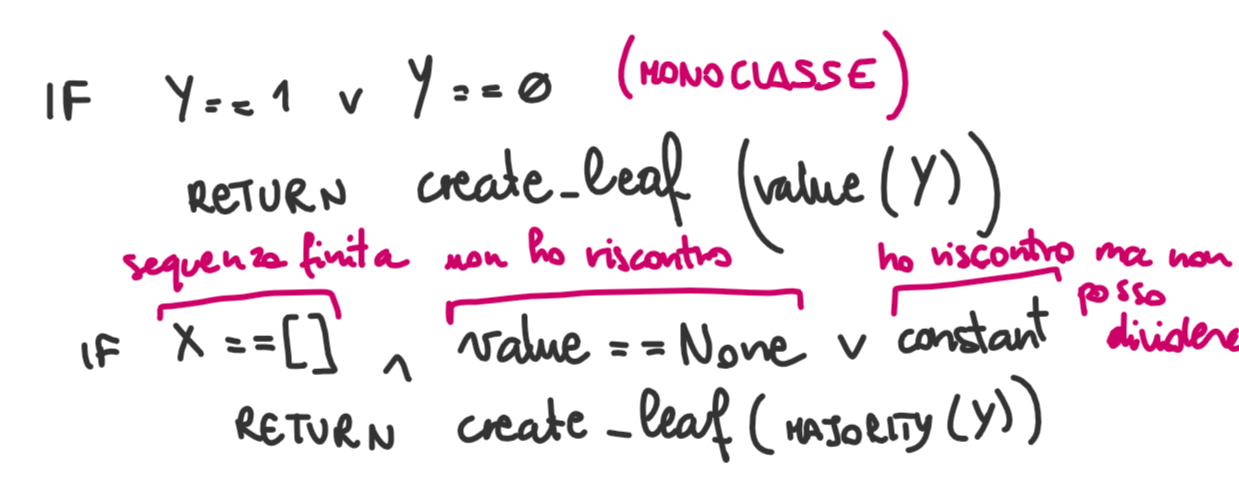 IF Y==1 v Y==0 (MONOCLASSE)
RETURN create_leaf (value(Y))
sequenza finita non ho riscontro ho riscontro ma non
posso
dividere
IF X==[] ∧ value==None v constant
RETURN create_leaf(MAJORITY(Y))